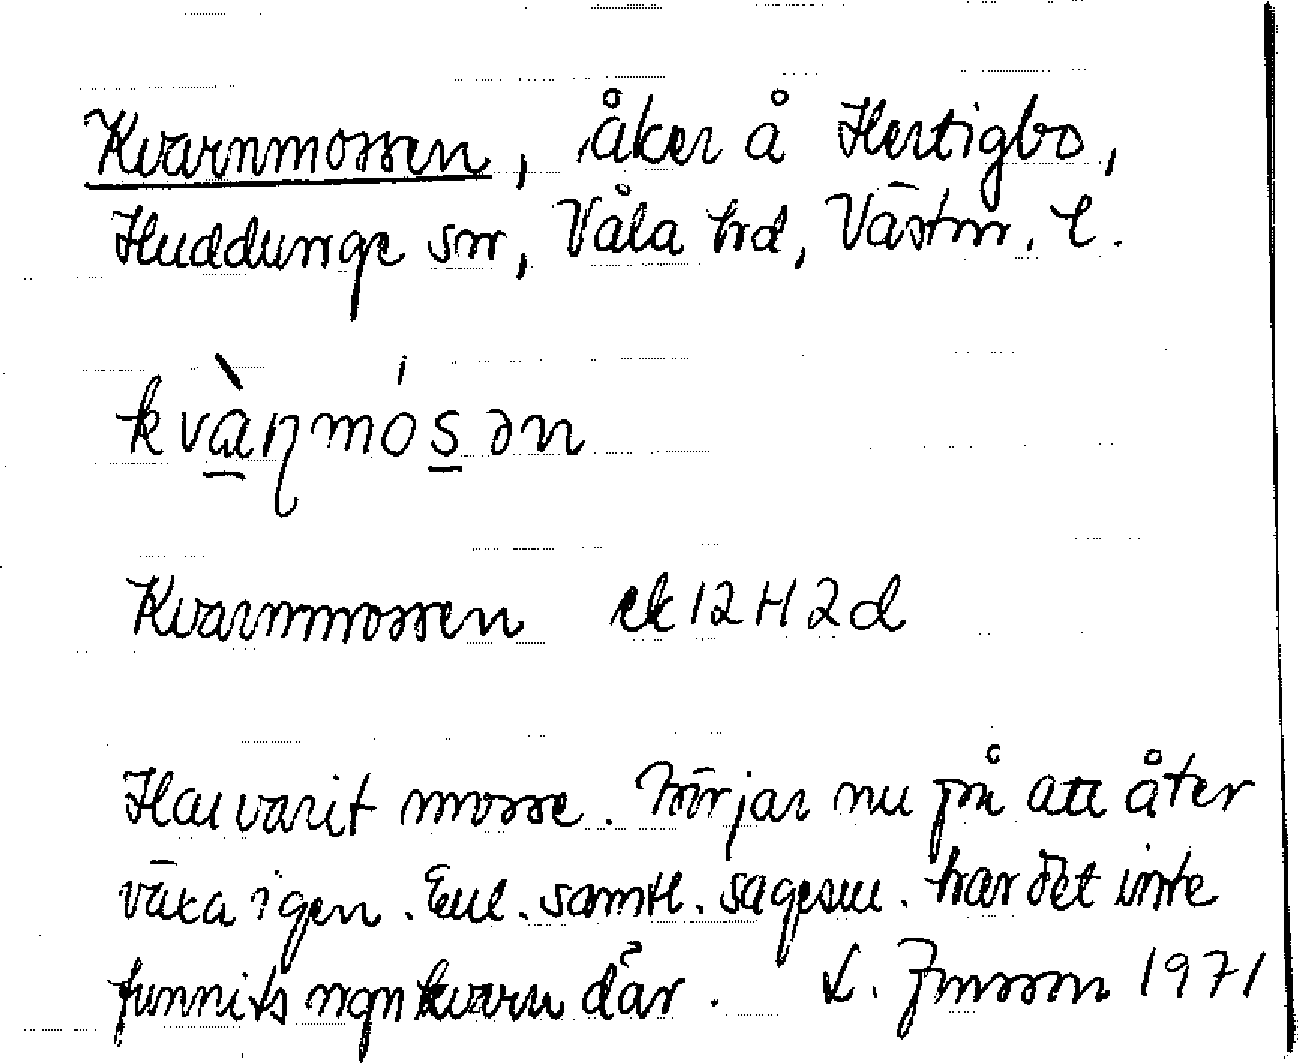 Kvarnmossen, åker å Hertigbo,
Huddunge sn, Våla hd, Västm. l.
kvàɳmósən
Kvarnmossen ek 12 H 2 d
Har varit mosse. Börjar nu på att åter
växa igen. Enl. samtl. sagesm. har det inte
funnits ngn kvarn där. L. Jnsson 1971